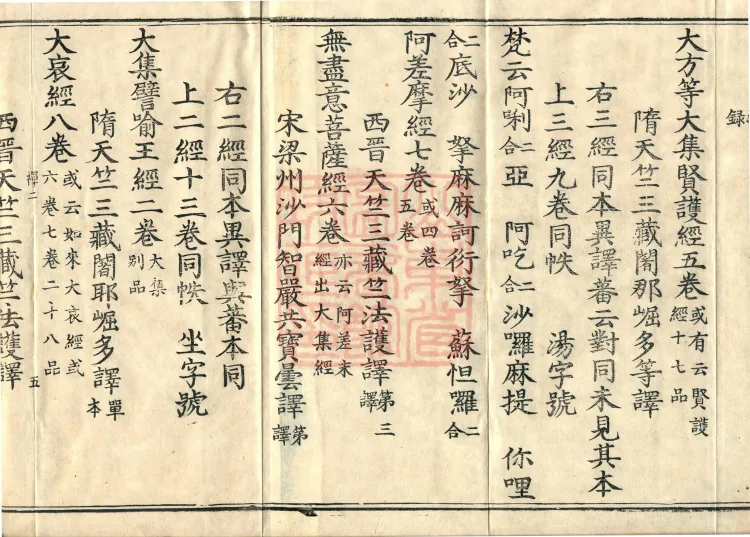 録
大方等大集賢護經五卷或有云賢護經十七品
隋天竺三藏闍那崛多等譯
右三經同本異譯蕃云對同未見其本
上三經九卷同帙　湯字號
梵云阿唎二合亞　阿吃二合沙囉麻提　你哩
二合底沙　拏麻麻訶衍拏　蘇怛囉二合
阿差摩經七卷或四卷五卷
西晉天竺三藏竺法護譯第三譯
無盡意菩薩經六卷亦云阿差末經出大集經
宋梁州沙門智嚴共寶曇譯第譯
右二經同本異譯與蕃本同
上二經十三卷同帙　坐字號
大集譬喻王經二卷大集別品
隋天竺三藏闍耶崛多譯單本
大哀經八卷或云如來大哀經或六卷七卷二十八品
五
西晉天竺三藏竺法護譯